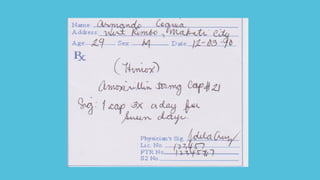 Name Armando Cequea
Address West Rembo, Makati City
Age 29 Sex M Date 12-03-90
Rx
(Himox)
Amoxicillin 500mg Cap # 21
Sig: 1 cap 3x a day for
seven days
Physician's Sig.
Lic. No. 123457
PTR No. 1234567
S2 No.